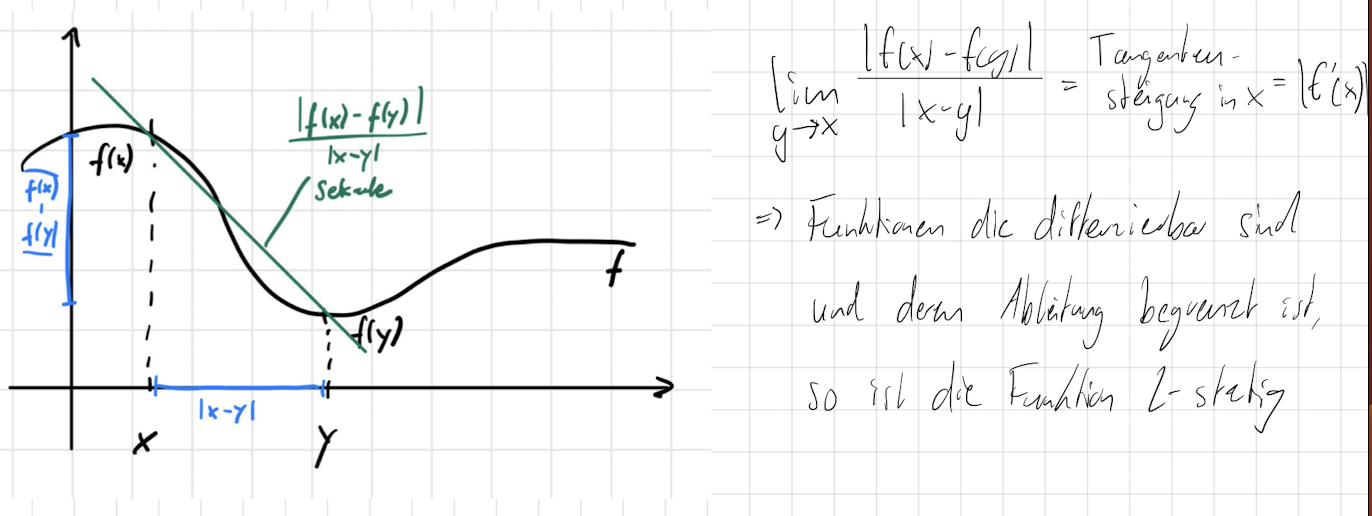 |f(x) - f(y)|
|x-y|
Sekante
f(x)
f(x)
-
f(y)
f(y)
f
|x-y|
x
y
lim |f(x) - f(y)| / |x-y| = Tangenten-
steigung in x = |f'(x)|
y→x
=> Funktionen die differenzierbar sind
und deren Ableitung begrenzt ist,
so ist die Funktion L-stetig